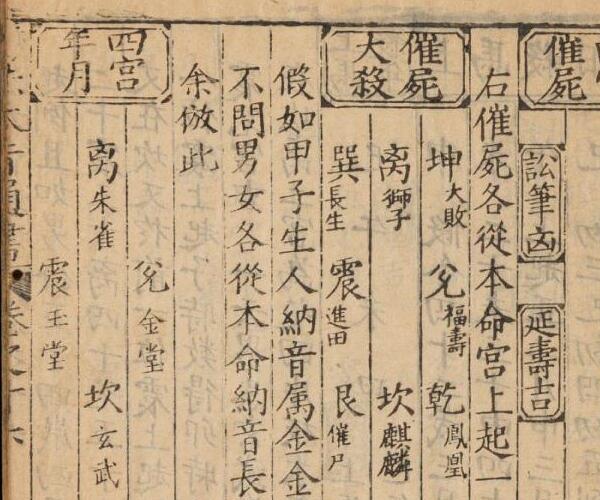 催屍
訟筆凶
延壽吉
右催屍各從本命宮上起一
坤大敗 兌福壽 乾鳳凰
催屍大殺
离獅子 坎麒麟
巽長生 震進田 艮催尸
假如甲子生人納音属金金
不問男女各從本命納音長
余倣此
四宮年月
兌金堂
离朱雀 坎玄武
震玉堂